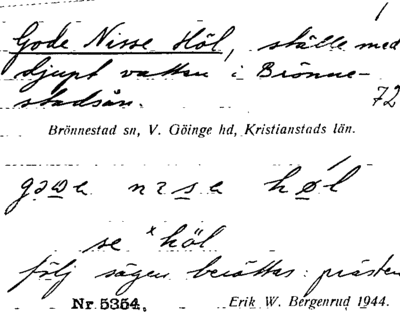 Gode Nisse Höl, ställe med
djupt vatten i Brönne-
stadsån. 72
Brönnestad sn, V. Göinge hd, Kristianstads län.
se ˣhöl
följ sägen berättas: prästen
Nr 5354. Erik W. Bergenrud 1944.